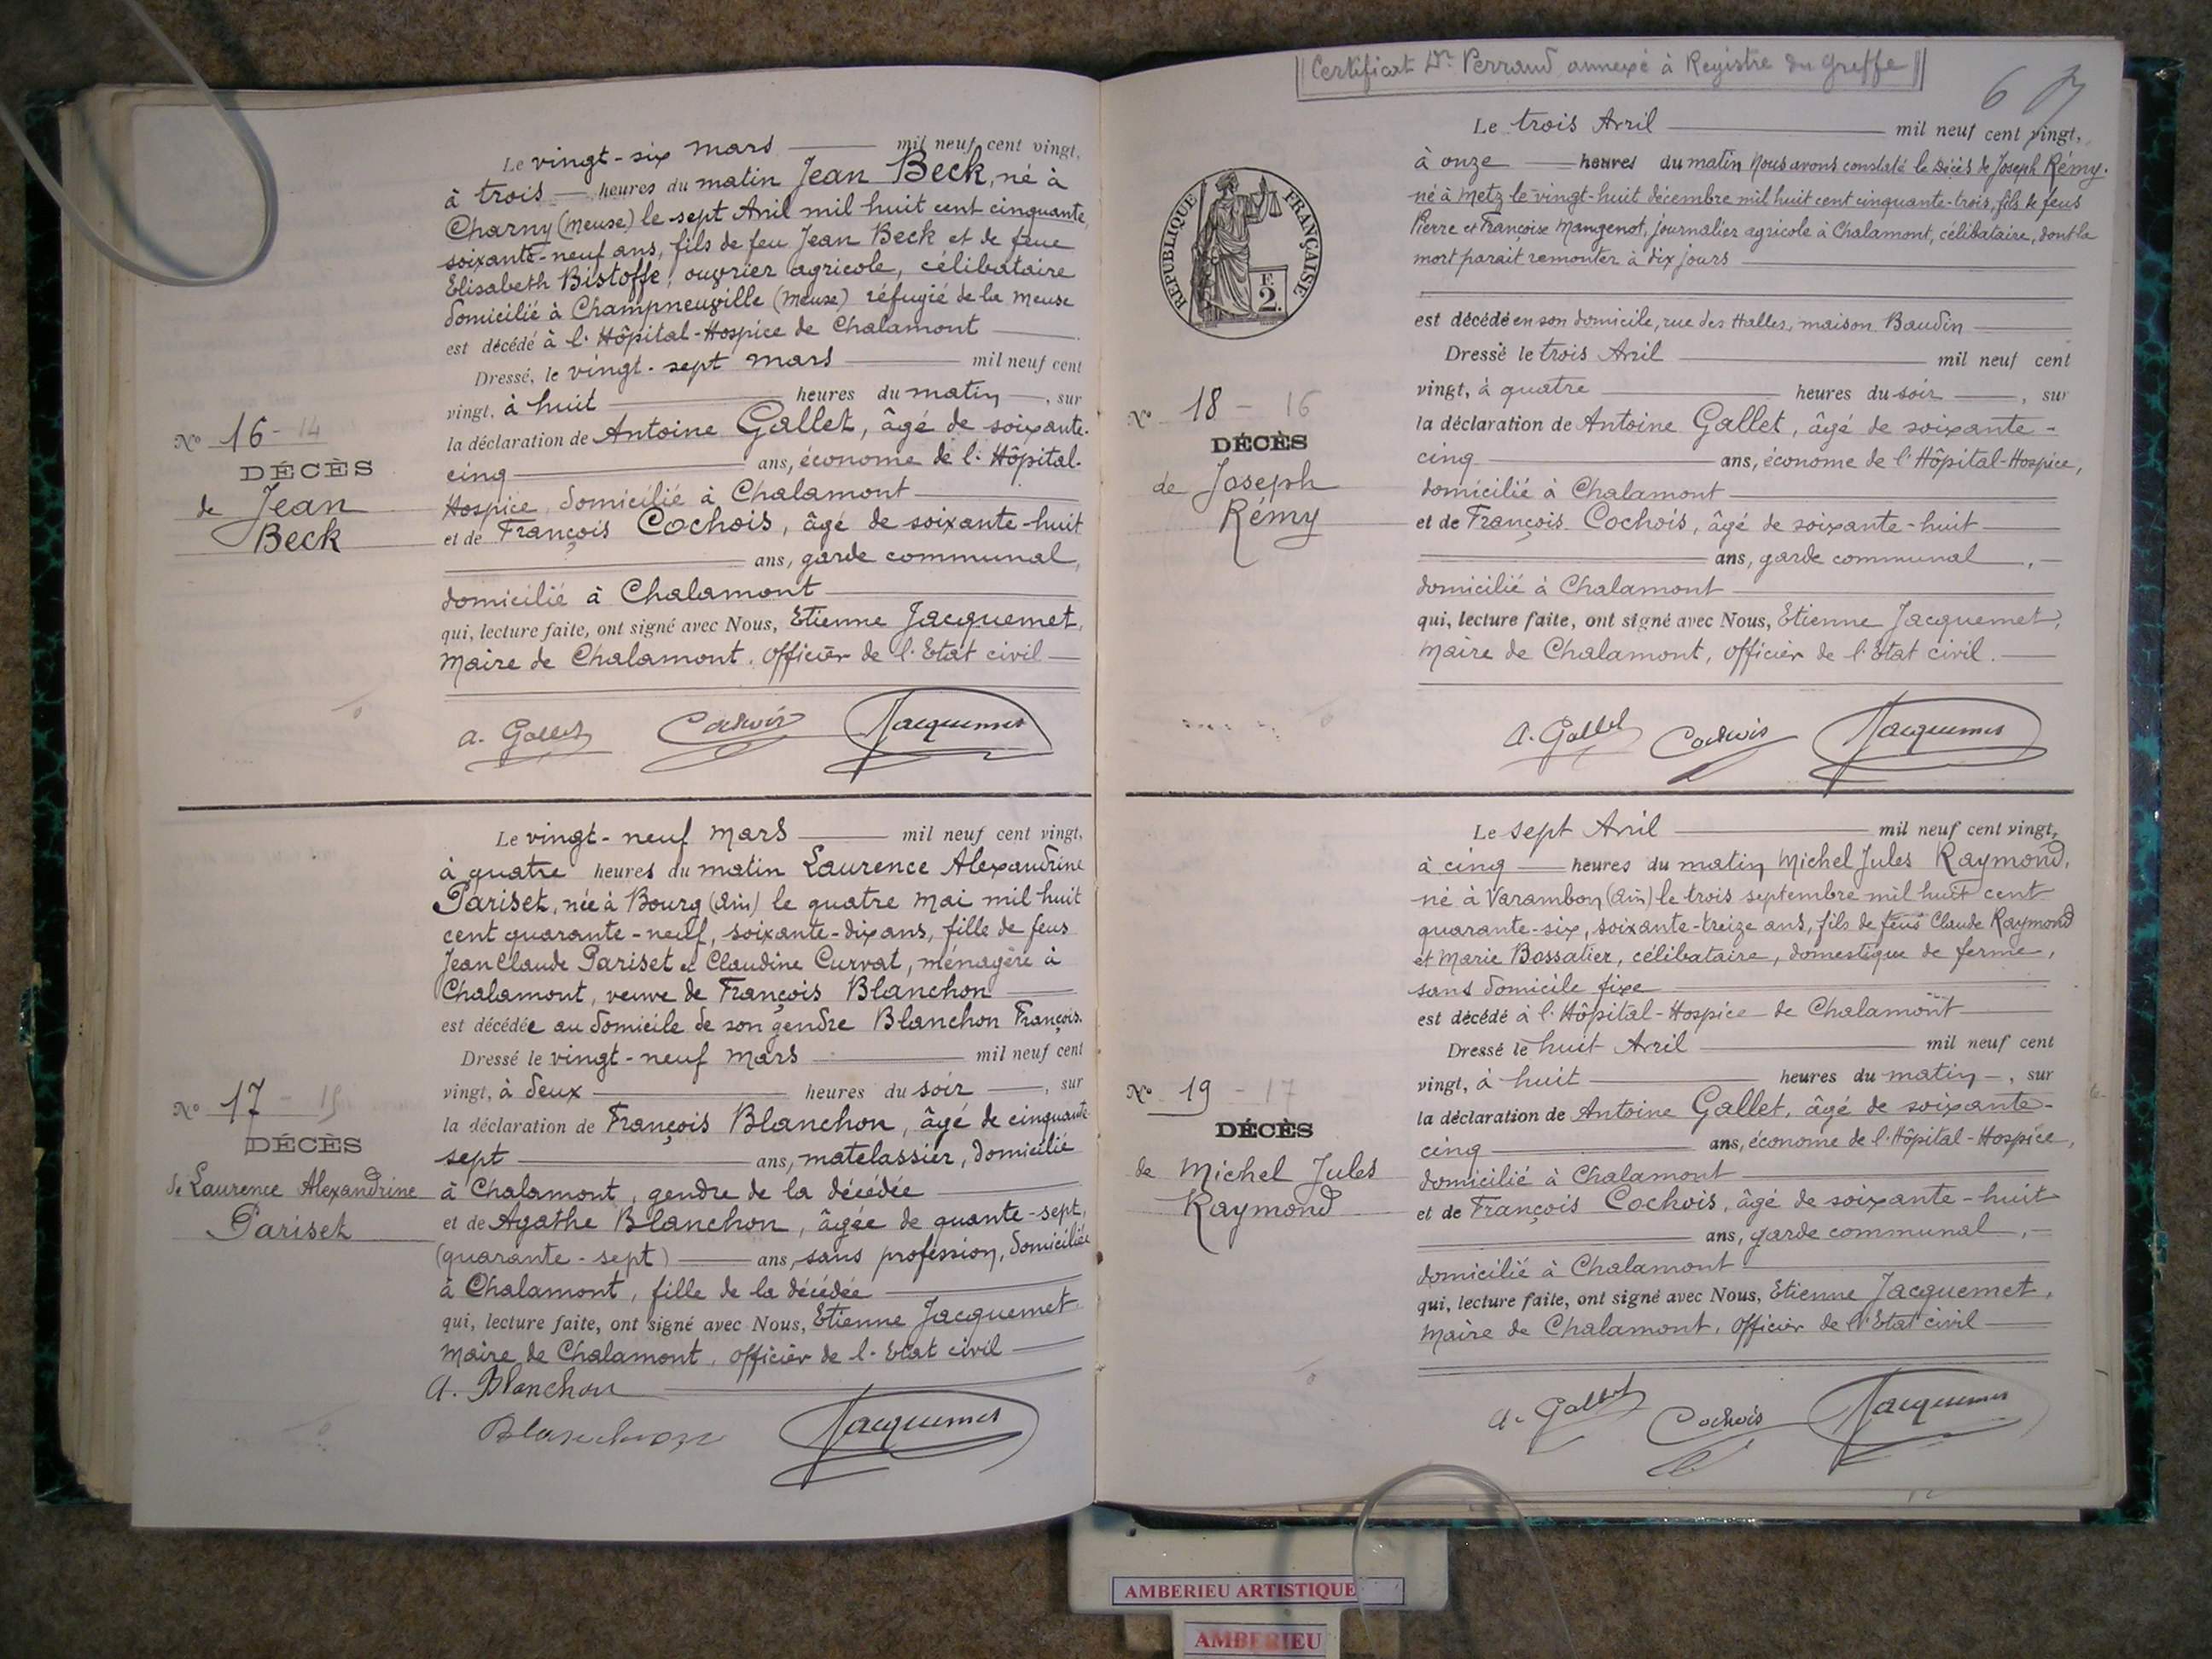 Le vingt-six mars mil neuf cent vingt,
à trois heures du matin Jean Beck, né à
Charny (Meuse) le sept Avril mil huit cent cinquante,
soixante-neuf ans, fils de feu Jean Beck et de feue
Elisabeth Bistoffe, ouvrier agricole, célibataire
domicilié à Champneuville (Meuse) réfugié de la Meuse
est décédé à l'Hôpital-Hospice de Chalamont
Dressé, le vingt-sept mars mil neuf cent
vingt, à huit heures du matin, sur
la déclaration de Antoine Gallet, âgé de soixante-
cinq ans, économe de l'Hôpital-
Hospice domicilié à Chalamont
et de François Cochois, âgé de soixante-huit
ans, garde communal,
domicilié à Chalamont
qui, lecture faite, ont signé avec Nous, Etienne Jacquemet,
Maire de Chalamont, Officier de l'Etat civil
A. Gallet Cochois Jacquemet
No 16 - 14
DÉCÈS
de Jean
Beck
Le vingt-neuf mars mil neuf cent vingt,
à quatre heures du matin Laurence Alexandrine
Pariset, née à Bourg (Ain) le quatre mai mil huit
cent quarante-neuf, soixante-dix ans, fille de feus
Jean Claude Pariset et Claudine Curvat, ménagère à
Chalamont, veuve de François Blanchon
est décédée au domicile de son gendre Blanchon François.
Dressé le vingt-neuf mars mil neuf cent
vingt, à deux heures du soir, sur
la déclaration de François Blanchon, âgé de cinquante-
sept ans, matelassier, domicilié
à Chalamont, gendre de la décédée
et de Agathe Blanchon, âgée de quante-sept,
(quarante-sept) ans, sans profession, domiciliée
à Chalamont, fille de la décédée
qui, lecture faite, ont signé avec Nous, Etienne Jacquemet,
Maire de Chalamont, Officier de l'Etat civil
A. Blanchon
Blanchon Jacquemet
No 17 - 15
DÉCÈS
de Laurence Alexandrine
Pariset
Certificat Dr Perraud annexé à Registre du Greffe
6
Le trois Avril mil neuf cent vingt,
à onze heures du matin Nous avons constaté le Décès de Joseph Rémy.
né à Metz le vingt-huit décembre mil huit cent cinquante-trois, fils de feus
Pierre et Françoise Mangenot, journalier agricole à Chalamont, célibataire, dont la
mort parait remonter à dix jours
est décédé en son domicile, rue des Halles, maison Baudin
Dressé le trois Avril mil neuf cent
vingt, à quatre heures du soir, sur
la déclaration de Antoine Gallet, âgé de soixante-
cinq ans, économe de l'Hôpital-Hospice,
domicilié à Chalamont
et de François Cochois, âgé de soixante-huit
ans, garde communal,
domicilié à Chalamont
qui, lecture faite, ont signé avec Nous, Etienne Jacquemet,
Maire de Chalamont, Officier de l'Etat civil.
A. Gallet Cochois Jacquemet
REPUBLIQUE FRANÇAISE
F.
2.
No 18 - 16
DÉCÈS
de Joseph
Rémy
Le sept Avril mil neuf cent vingt,
à cinq heures du matin Michel Jules Raymond,
né à Varambon (Ain) le trois septembre mil huit cent
quarante-six, soixante-treize ans, fils de feus Claude Raymond
et Marie Bossatier, célibataire, domestique de ferme,
sans domicile fixe
est décédé à l'Hôpital-Hospice de Chalamont
Dressé le huit Avril mil neuf cent
vingt, à huit heures du matin, sur
la déclaration de Antoine Gallet, âgé de soixante-
cinq ans, économe de l'Hôpital-Hospice,
domicilié à Chalamont
et de François Cochois, âgé de soixante-huit
ans, garde communal,
domicilié à Chalamont
qui, lecture faite, ont signé avec Nous, Etienne Jacquemet,
Maire de Chalamont, Officier de l'Etat civil
A. Gallet Cochois Jacquemet
No 19 - 17
DÉCÈS
de Michel Jules
Raymond
AMBERIEU ARTISTIQUE
AMBERIEU